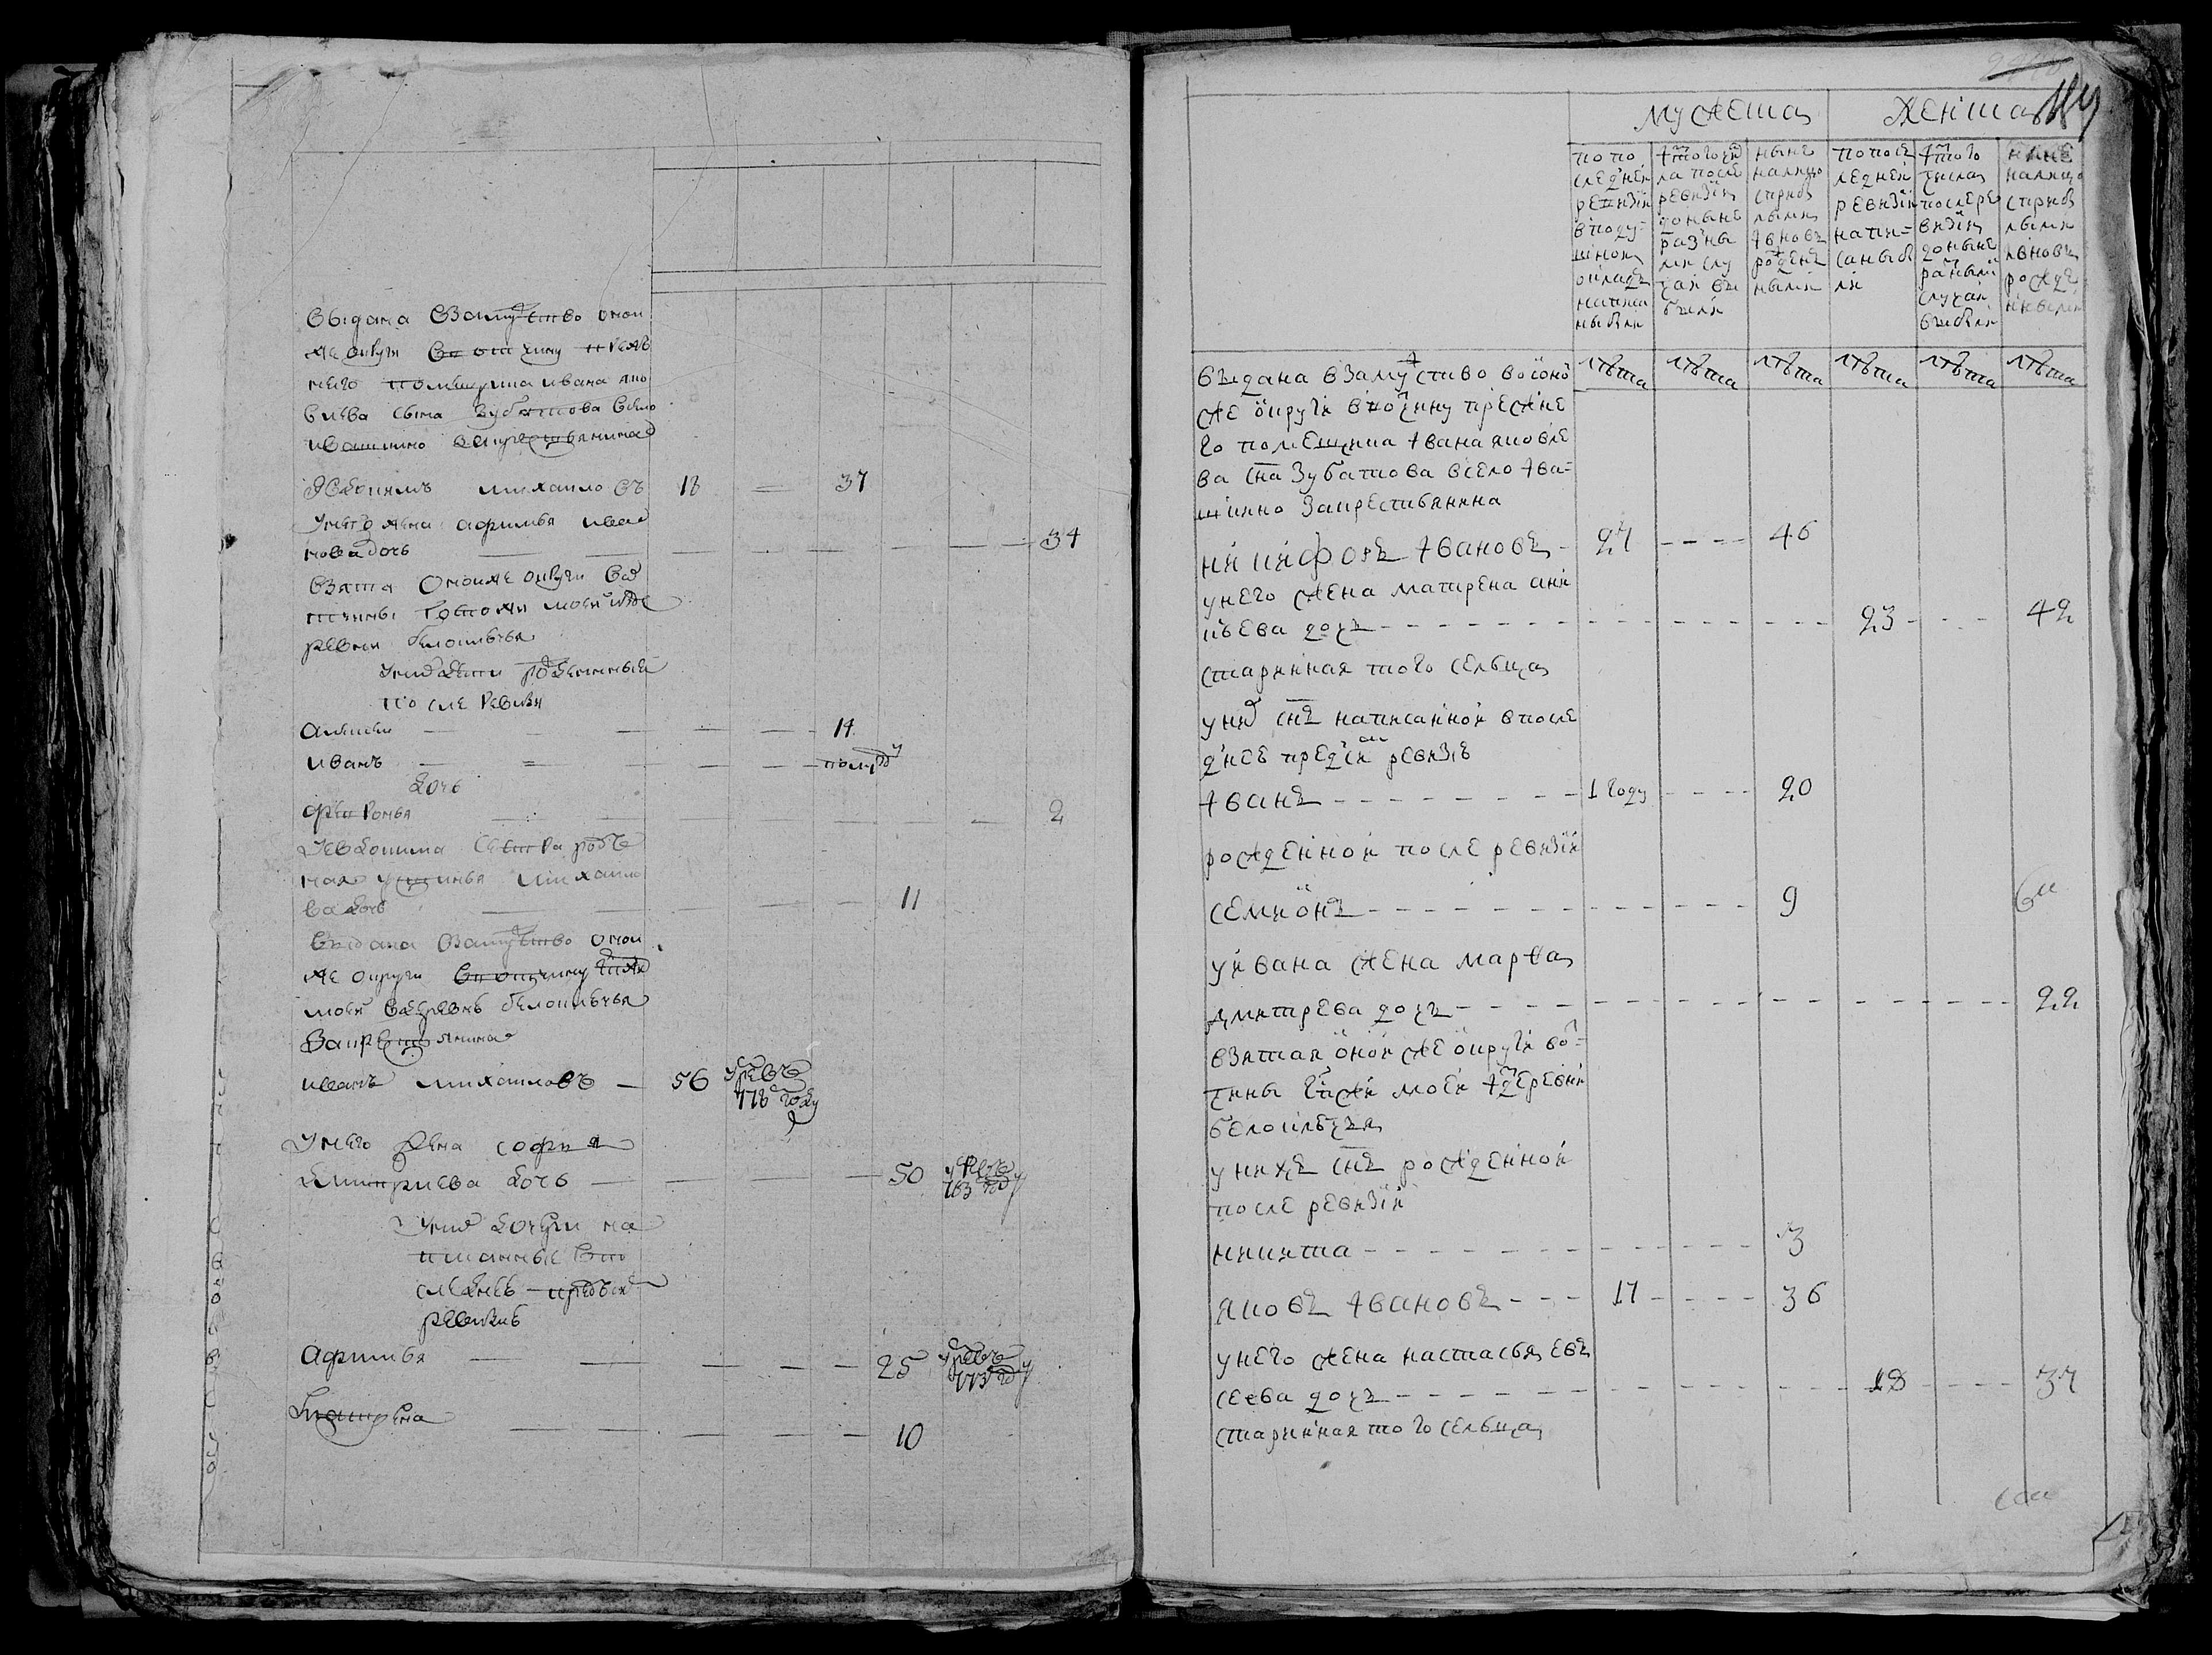 выдана взамужство оной
же округи вотчину преж
него помещика ивана яко
влева сына зубатова всело
ивашкино закрестьянина
Евдокимъ михаиловъ 18 = 37
Унего жена афимья ива
нова дочь 34
взята оноиже округи во
тчины тоеже моеи изде
ревни белоключья
Унихдети рожденныя
после ревизи
алексеи 14
иванъ полугоду
дочь
февронья 2
Уевдокима сестра родъ
ная устинья михаило
ва дочь 11
выдана взамужство оной
же округи ввотчину тоеже
моей вдеревнь белоключья
Закрестьянина
иванъ михаиловъ 56 умре въ
778 году
Унего жена софия
дмитриева дочь 50 умре въ
763 году
Уних дочери на
писанныя впо
следней предъсей
ревизиь
афимья 25 умре въ
773 году
катерина 10
мужеска женска
по по
следней
ревизіи
вподу-
шном
окладе
написа
ны были
і того чис
ла после
ревизіи
доныне
разны
ми слу
чаи вы
были
ныне
налицо
с прибы
лыми
і вновь
рожден
ными
по посл
едней
ревизіи
напи-
саны бы
ли
і того
числа
после ре
визіи
доныне
разными
случаи
выбыли
ныне
налицо
с прибы
лыми
і вновь
рожде
нными
лѣта лѣта лѣта лѣта лѣта лѣта
выдана взамужство воіоно
же округи ввотчину прежне
го помещика івана яковле
ва сна зубатова всело іва-
шкино закрестьянина
никифоръ івановъ 27 46
унего жена матрена ани
кѣева дочь 23 42
стариннная того сельца
уних снъ написанной впосле
днеѣ пред сей ревизіѣ
іванъ 1 году 20
рожденной после ревизіи
семионъ 9
уивана жена марѳа
дмитрева дочь 22
взятая оной же округи во-
тчины тоеже моеи із деревни
белоключья
унихъ снъ рожденной
после ревизіи
никита 3
яковъ івановъ 17 36
унего жена настасья евъ
сеева дочь 18 37
старинная того сельца